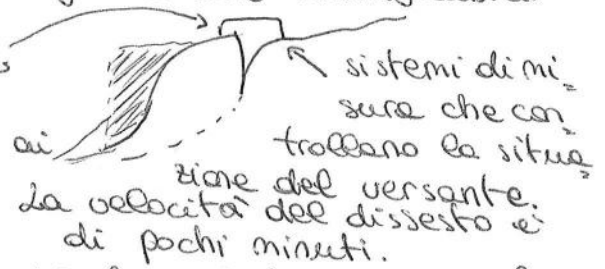 sistemi di mi=
sura che con=
ai trollano la situa=
zione del versante.
La velocità del dissesto è
di pochi minuti.